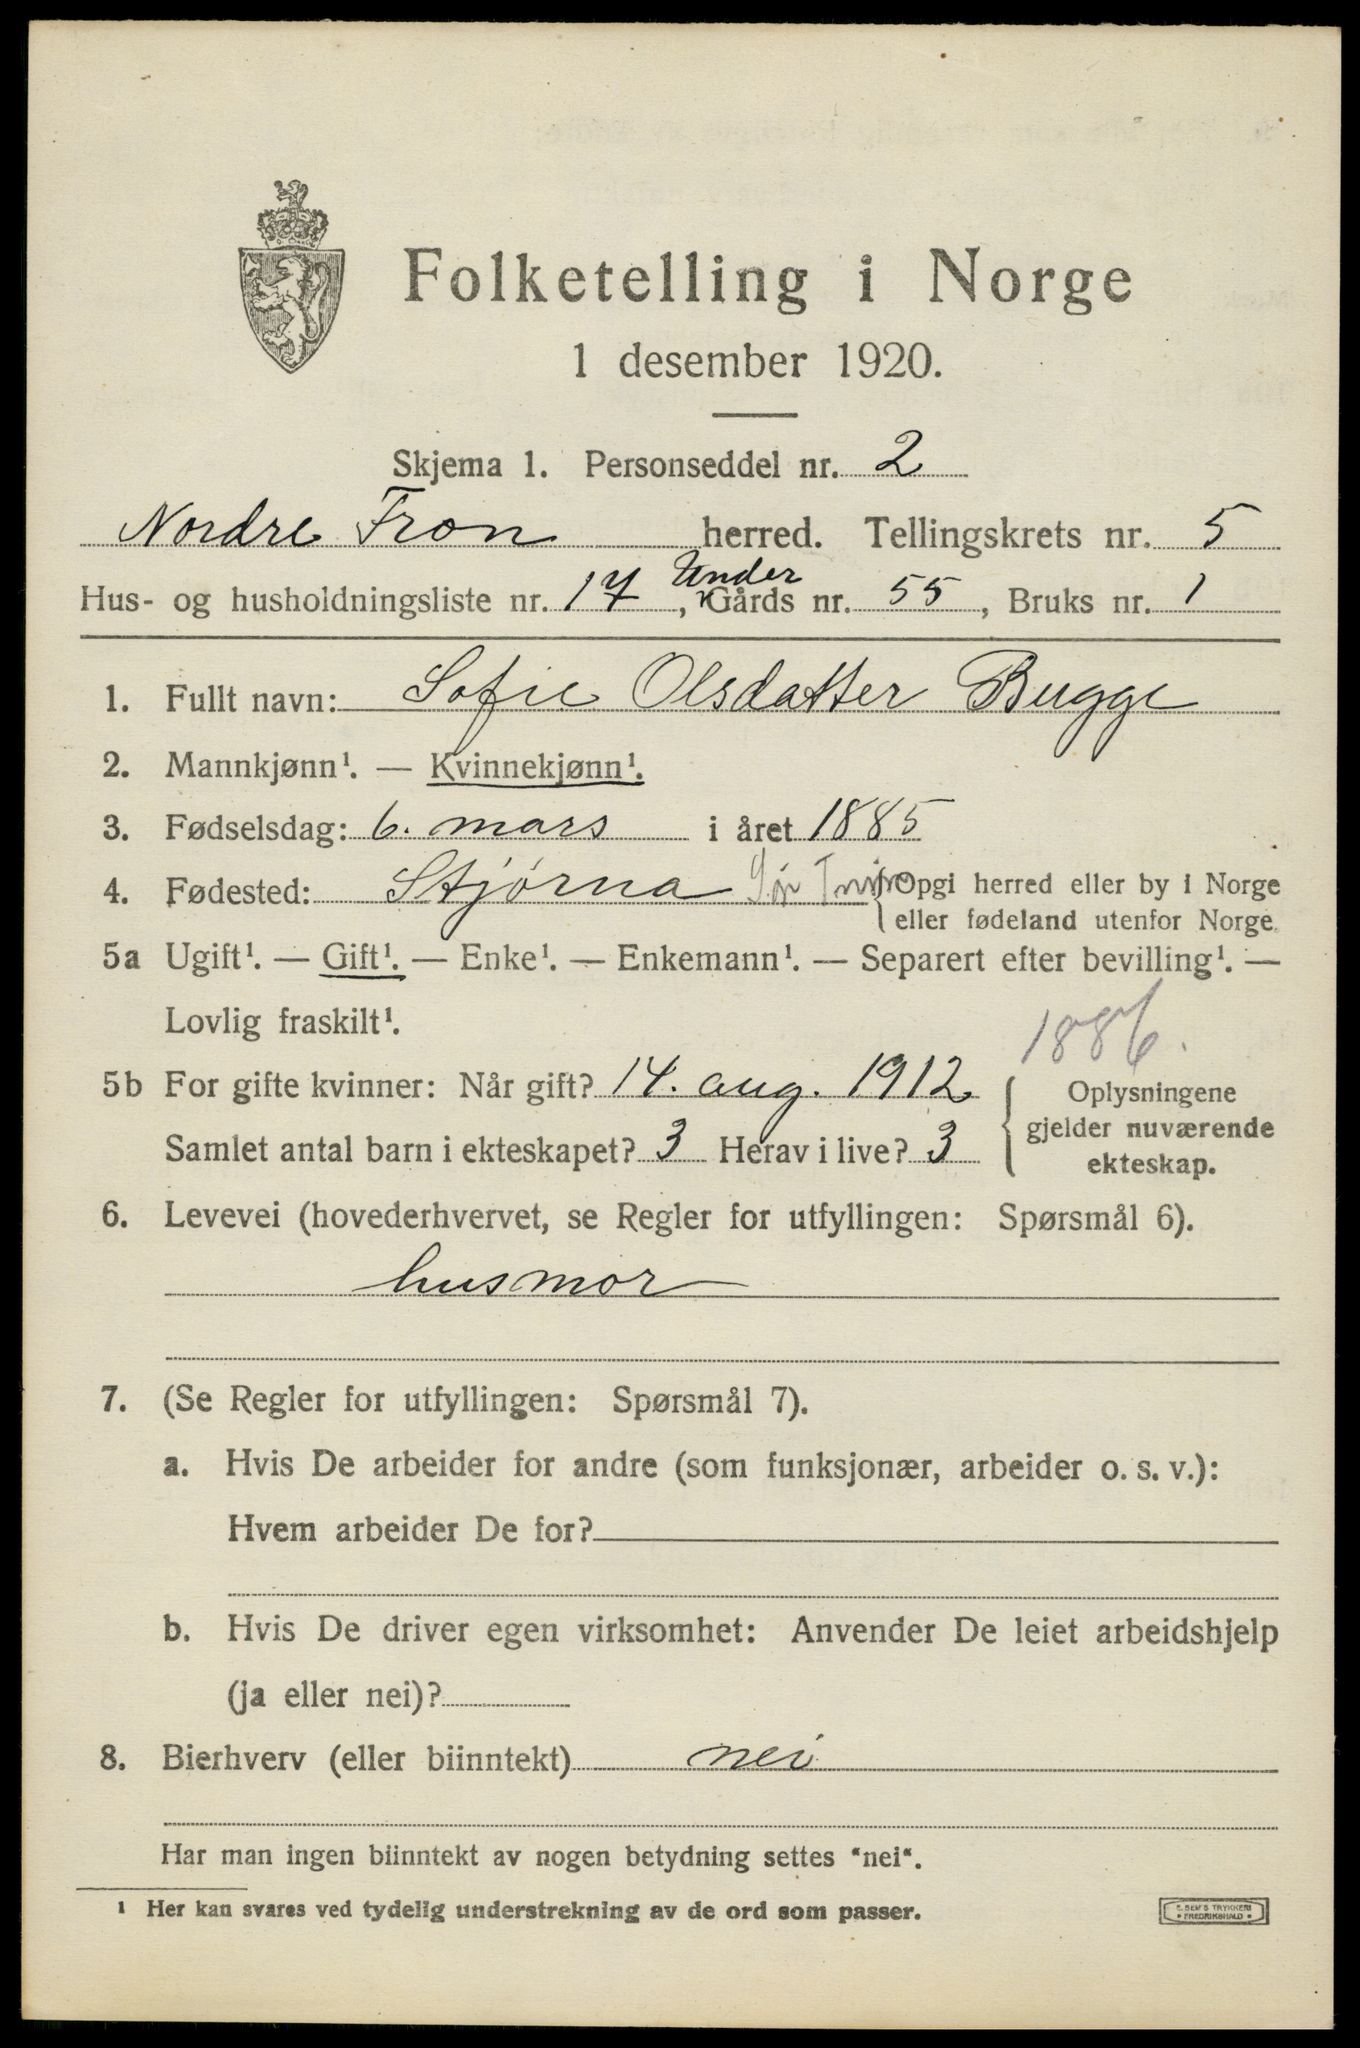 Folketelling i Norge
1 desember 1920.
Skjema 1. Personseddel nr. 2
Nordre Fron herred. Tellingskrets nr. 5
Hus- og husholdningsliste nr. 17, Under Gårds nr. 55, Bruks nr. 1
1. Fullt navn: Sofie Olsdatter Bugge
2. Mannkjønn¹. — Kvinnekjønn¹.
3. Fødselsdag: 6. mars i året 1885
4. Fødested: Stjørna Sør {Opgi herred eller by i Norge
eller fødeland utenfor Norge.
5a Ugift¹. — Gift¹. — Enke¹. — Enkemann¹. — Separert efter bevilling¹. —
Lovlig fraskilt¹.
1886.
5b For gifte kvinner: Når gift? 14. aug. 1912
Samlet antal barn i ekteskapet? 3 Herav i live? 3
Oplysningene
gjelder nuværende
ekteskap.
6. Levevei (hovederhvervet, se Regler for utfyllingen: Spørsmål 6).
husmor
7. (Se Regler for utfyllingen: Spørsmål 7).
a. Hvis De arbeider for andre (som funksjonær, arbeider o. s. v.):
Hvem arbeider De for?
b. Hvis De driver egen virksomhet: Anvender De leiet arbeidshjelp
(ja eller nei)?
8. Bierhverv (eller biinntekt) nei
Har man ingen biinntekt av nogen betydning settes "nei".
¹ Her kan svares ved tydelig understrekning av de ord som passer.
E. SEM'S TRYKKERI
• FREDRIKSHALD •